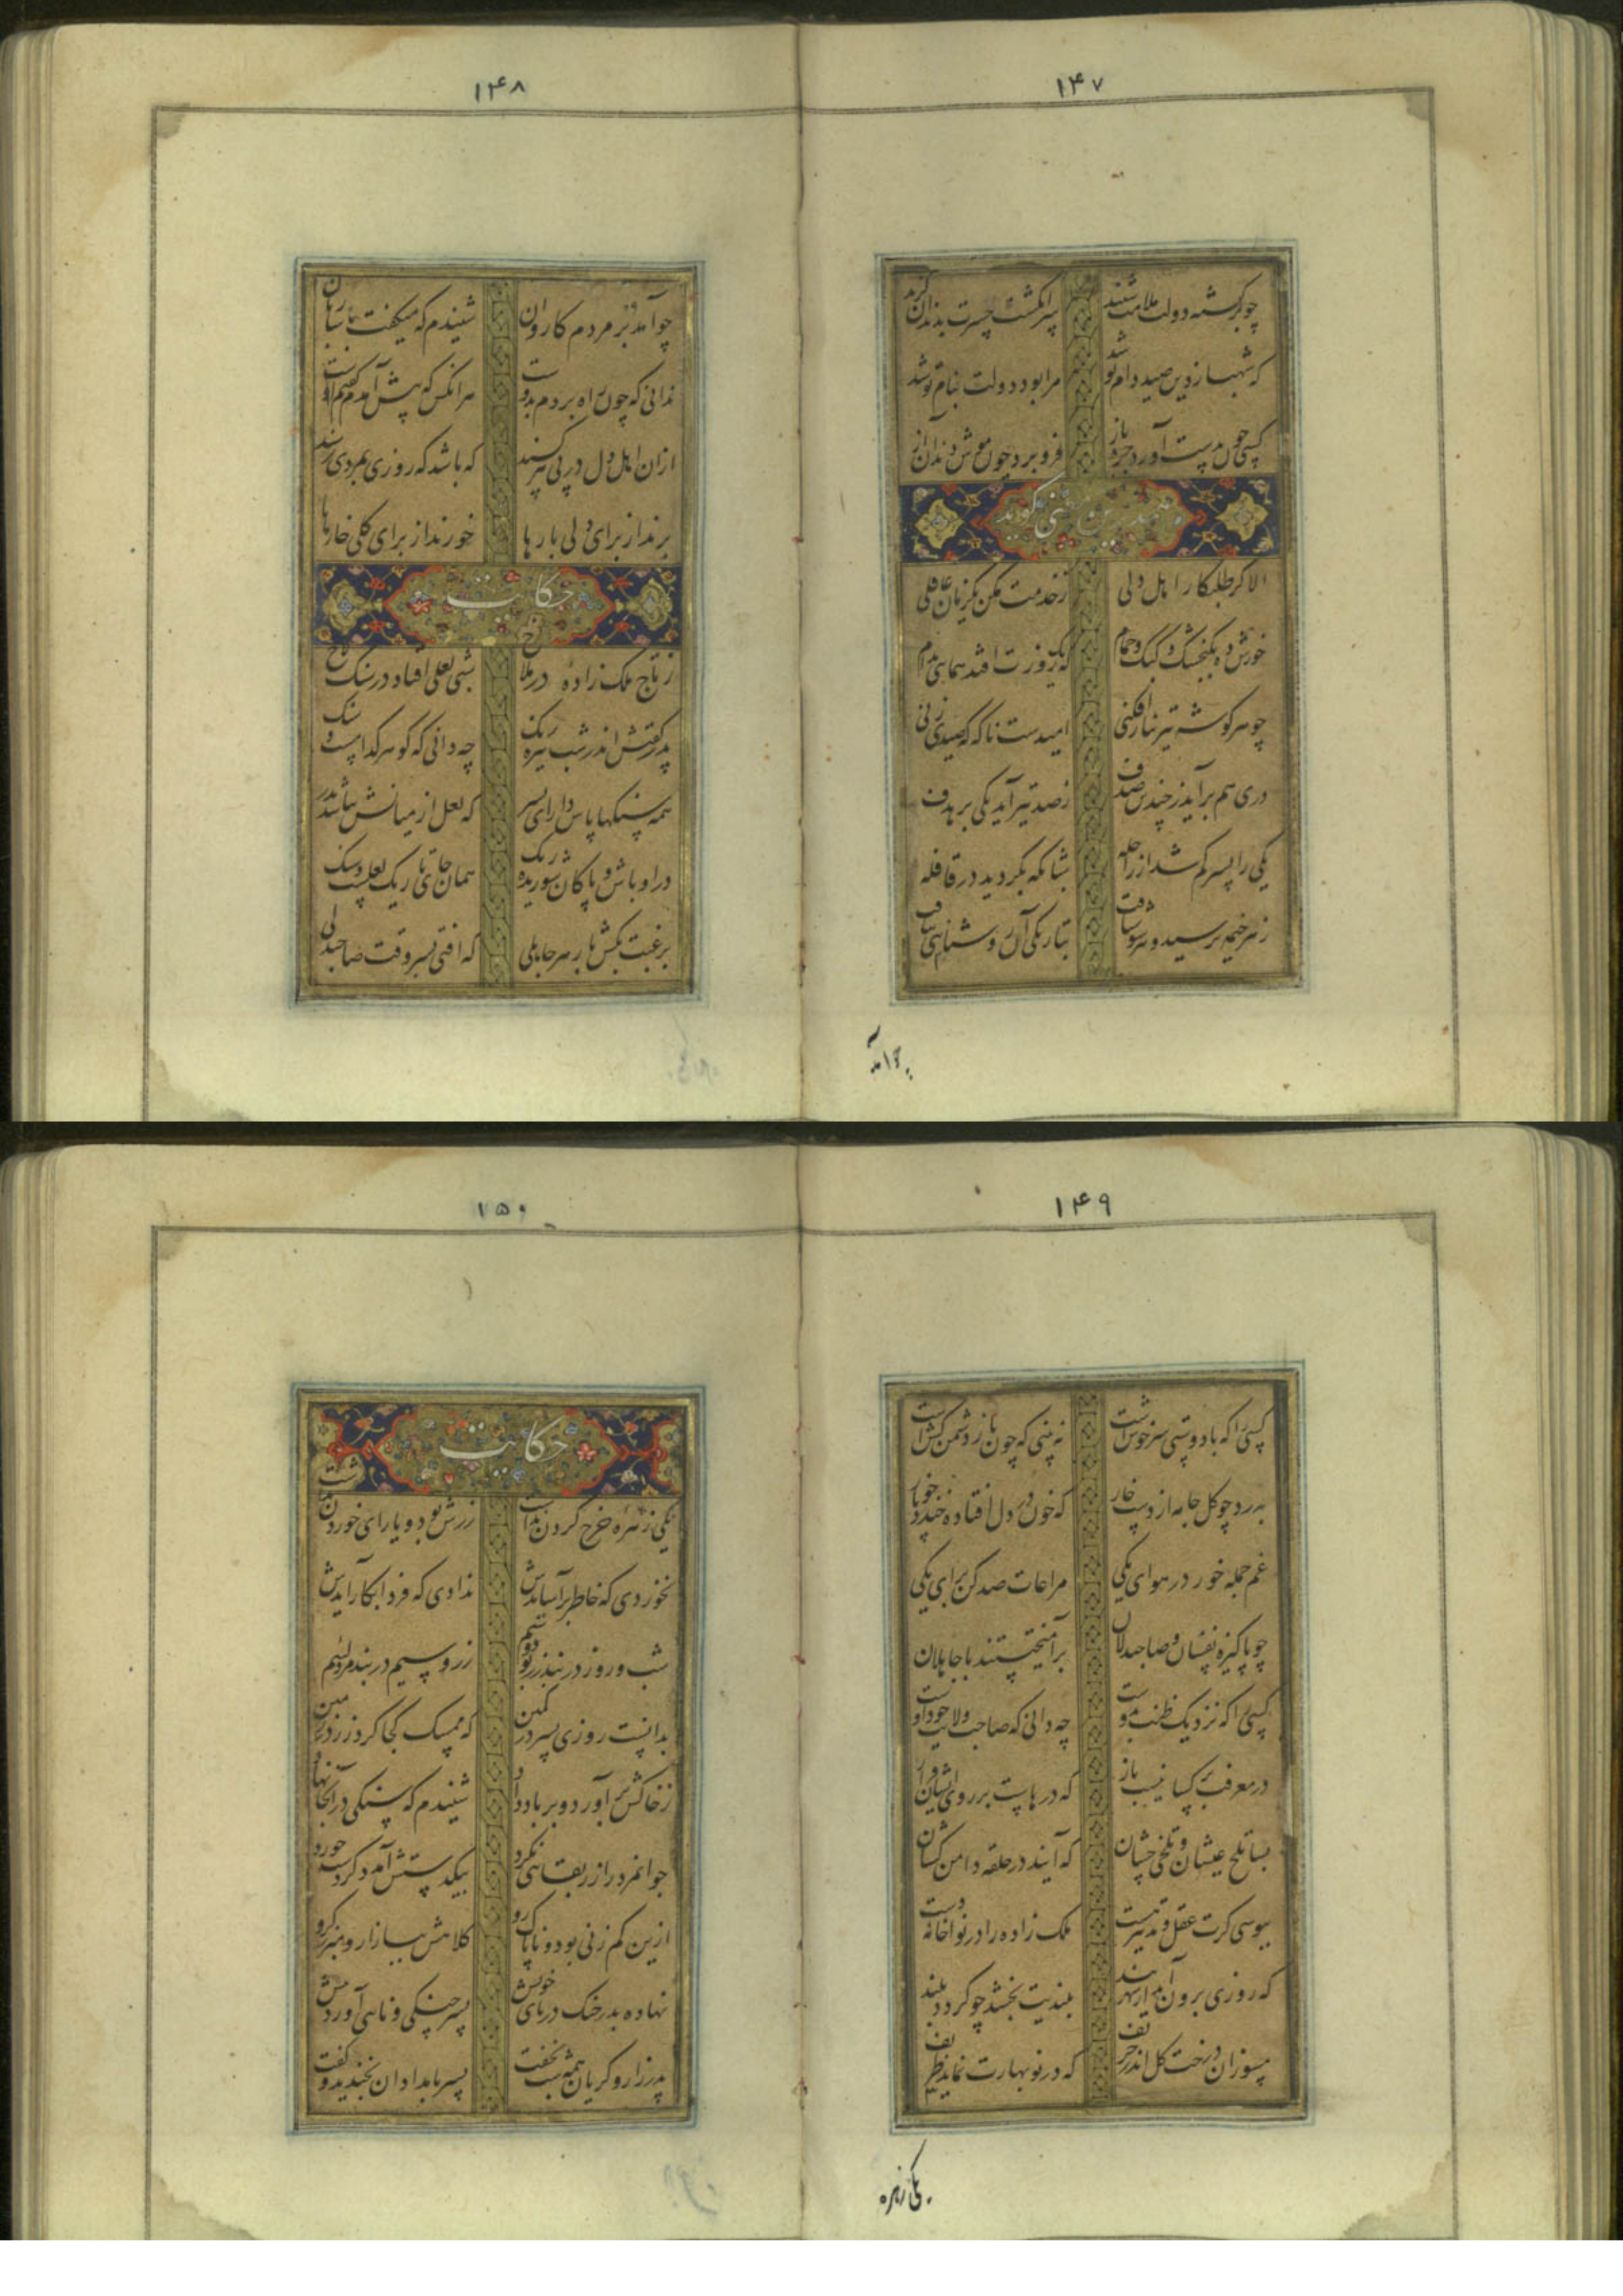 ۱۴۷
چو برگشته دولت ملامت شنید سر انگشت حسرت بدندان گزید
که شهباز من صید دام تو شد مرا بود دولت بنام تو شد
کسی چون بدست آورد جره باز فرو برده چون موش دندان آز
الا گر طلبکار اهل دلی ز خدمت مکن یکزمان غافلی
خورش ده بگنجشک و کبک و حمام که یکروزت افتد همایی بدام
چو هر گوشه تیر نیاز افکنی امیدست ناگه که صیدی زنی
دری هم برآید ز چندین صدف ز صد تیر آید یکی بر هدف
یکی را پسر گم شد از راحله شبانگه بگردید در قافله
ز هر خیمه پرسید و هر سو شتافت بتاریکی آن روشنایی بیافت
چو آمد
۱۴۸
چو آمد بر مردم کاروان شنیدم که میگفت با ساربان
ندانی که چون راه بردم بدوست هر آنکس که پیش آمدم گفتم اوست
از آن اهل دل در پی هر کسند که باشد که روزی بمردی رسند
برند از برای دلی بارها خورند از برای گلی خارها
حکایت
ز تاج ملک زاده در ملاخ شبی لعلی افتاد در سنگ لاخ
پدر گفتش اندر شب تیره رنگ چه دانی که گوهر کدامست و سنگ
همه سنگها پاس دار ای پسر که لعل از میانش نباشد بدر
در اوباش و پاکان شوریده رنگ همان جای تاریک لعلست و سنگ
برغبت بکش بار هر جاهلی که افتی بسر وقت صاحبدلی
۱۴۹
کسی را که با دوستی سر خوش است نه بینی که چون بار دشمن کش است
بدرد چو گل جامه از دست خار که خون در دل افتاده خندد چو نار
غم جمله خور در هوای یکی مراعات صد کن برای یکی
چو پاکیزه نفسان و صاحبدلان برآمیختستند با جاهلان
کسی را که نزدیک ظنت بدوست چه دانی که صاحب ولایت خود اوست
در معرفت بر کسانیست باز که درهاست بر روی ایشان فراز
بسا تلخ عیشان و تلخی چشان که آیند در حلقه دامن کشان
ببوسی گرت عقل و تدبیر هست ملک زاده را در نواخانه دست
که روزی برون آید از شهر بند بلندیت بخشد چو گردد بلند
مسوزان درخت گل اندر خریف که در نوبهارت نماید ظریف
یکی زهره
۱۵۰
حکایت
یکی زهره خرج کردن نداشت زرش بود و یارای خوردن نداشت
نخوردی که خاطر برآسایدش ندادی که فردا بکار آیدش
شب و روز در بند زر بود و سیم زر و سیم در بند مرد لئیم
بدانست روزی پسر در کمین که ممسک کجا کرد زر در زمین
ز خاکش برآورد و بر باد داد شنیدم که سنگی در آنجا نهاد
جوانمرد را زر بقایی نکرد بیکدستش آمد دگر دست خورد
ازین کم زنی بود و ناپاک رو کلاهش ببازار و میزر گرو
نهاده پدر چنگ در نای خویش پسر چنگی و نایی آورد پیش
پدر زار و گریان همه شب نخفت پسر بامدادان بخندید و گفت